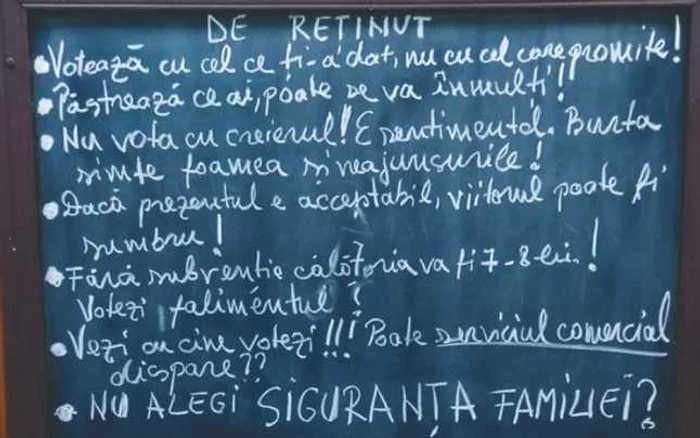 DE RETINUT
• Votează cu cel ce ți-a dat, nu cu cel care promite!
• Păstrează ce ai, poate se va înmulți!
• Nu vota cu creierul! E sentimental. Burta
simte foamea și neajunsurile!
• Dacă prezentul e acceptabil, viitorul poate fi
sumbru!
• Fără subvenție călătoria va fi 7-8 lei!
Votezi falimentul?
• Vezi cu cine votezi!!! Poate serviciul comercial
dispare??
• NU ALEGI SIGURANȚA FAMILIEI?